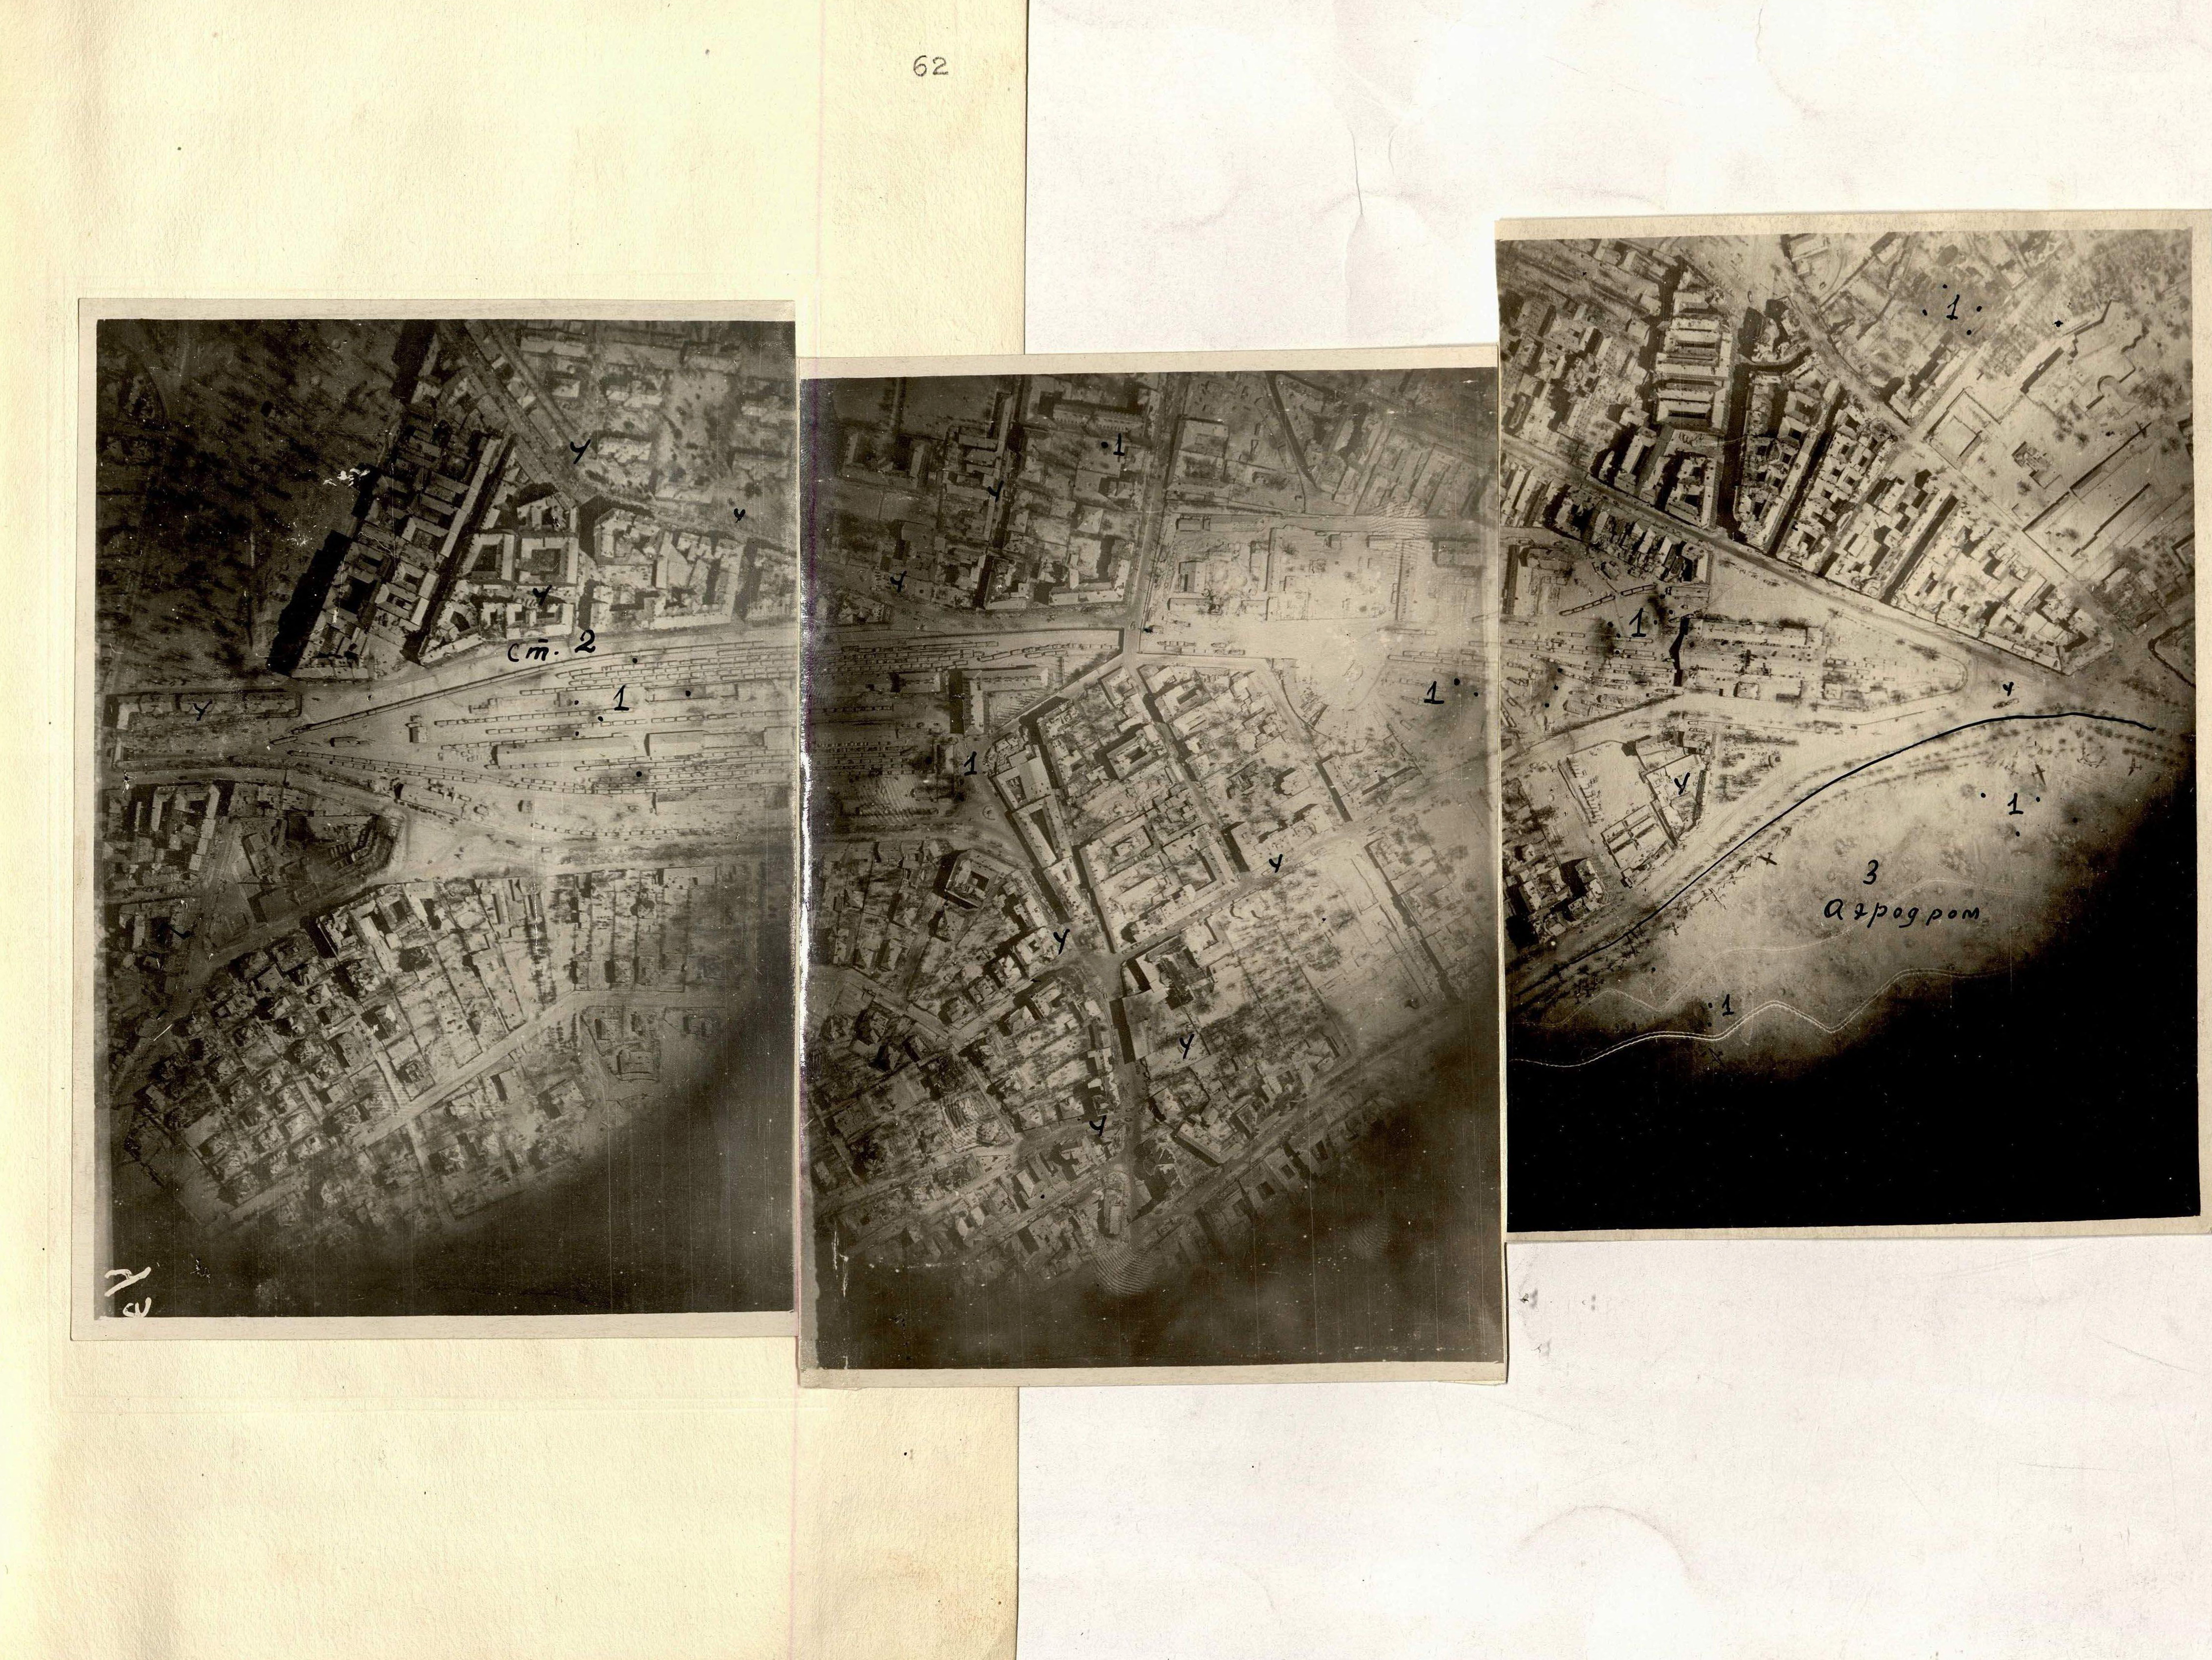 62
1
у
1
у
у
у
у
у
ст. 2
1
1
у
1
1
у
у
1
у
3
Аэродром
у
1
у
у